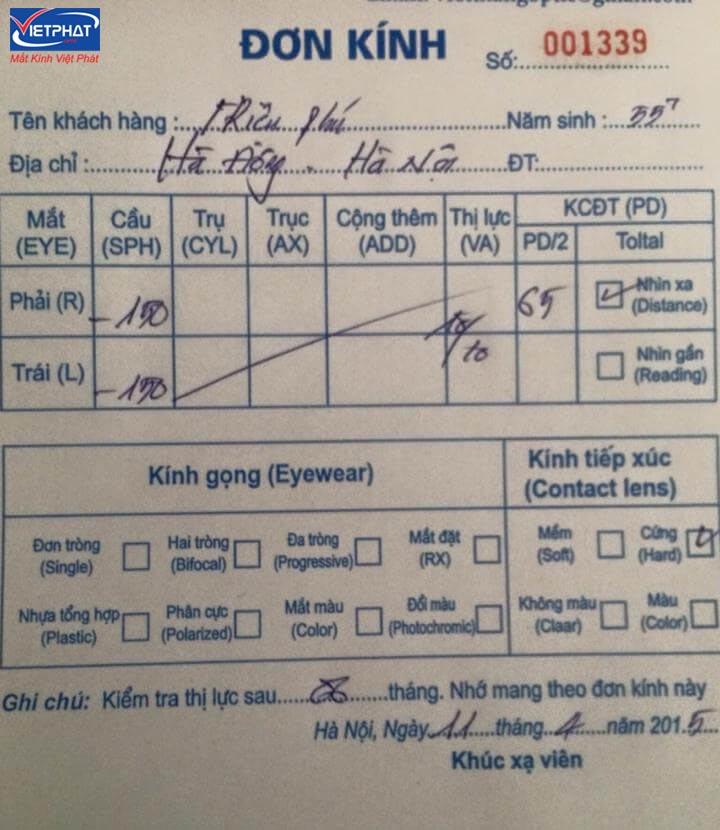 VIETPHAT
Mắt Kính Việt Phát
ĐƠN KÍNH
Số: 001339
Tên khách hàng : Triều Phú Năm sinh :
Địa chỉ : Hà Đông - Hà Nội ĐT:
Mắt (EYE) Cầu (SPH) Trụ (CYL) Trục (AX) Cộng thêm (ADD) Thị lực (VA) KCĐT (PD)
PD/2 Toltal
Phải (R) -150 65 Nhìn xa (Distance)
10/10
Trái (L) -150 Nhìn gần (Reading)
Kính gọng (Eyewear) Kính tiếp xúc (Contact lens)
Đơn tròng (Single) Hai tròng (Bifocal) Đa tròng (Progressive) Mắt đặt (RX) Mềm (Soft) Cứng (Hard)
Nhựa tổng hợp (Plastic) Phân cực (Polarized) Mắt màu (Color) Đổi màu (Photochromic) Không màu (Claar) Màu (Color)
Ghi chú: Kiểm tra thị lực sau......tháng. Nhớ mang theo đơn kính này
Hà Nội, Ngày 11 tháng 4 năm 2015
Khúc xạ viên